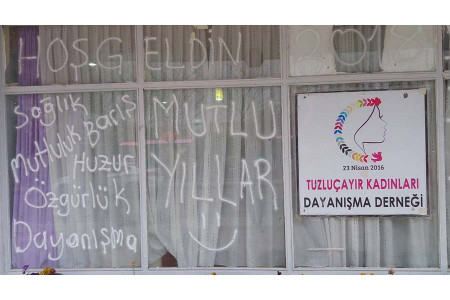 HOŞGELDİN 2018
Sağlık
Mutluluk Barış
Huzur
Özgürlük
Dayanışma
MUTLU
YILLAR
23 Nisan 2016
TUZLUÇAYIR KADINLARI
DAYANIŞMA DERNEĞİ